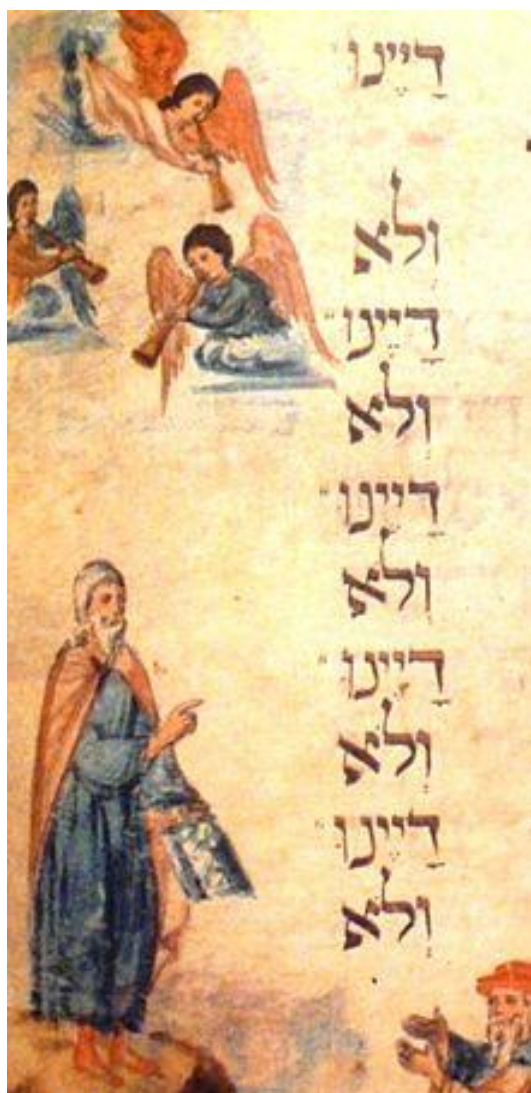 דַיֵינוּ
וְלֹא
דָיֵינוּ
וְלֹא
דָיֵינוּ
וְלֹא
דָיֵינוּ
וְלֹא
דָיֵינוּ
וְלֹא